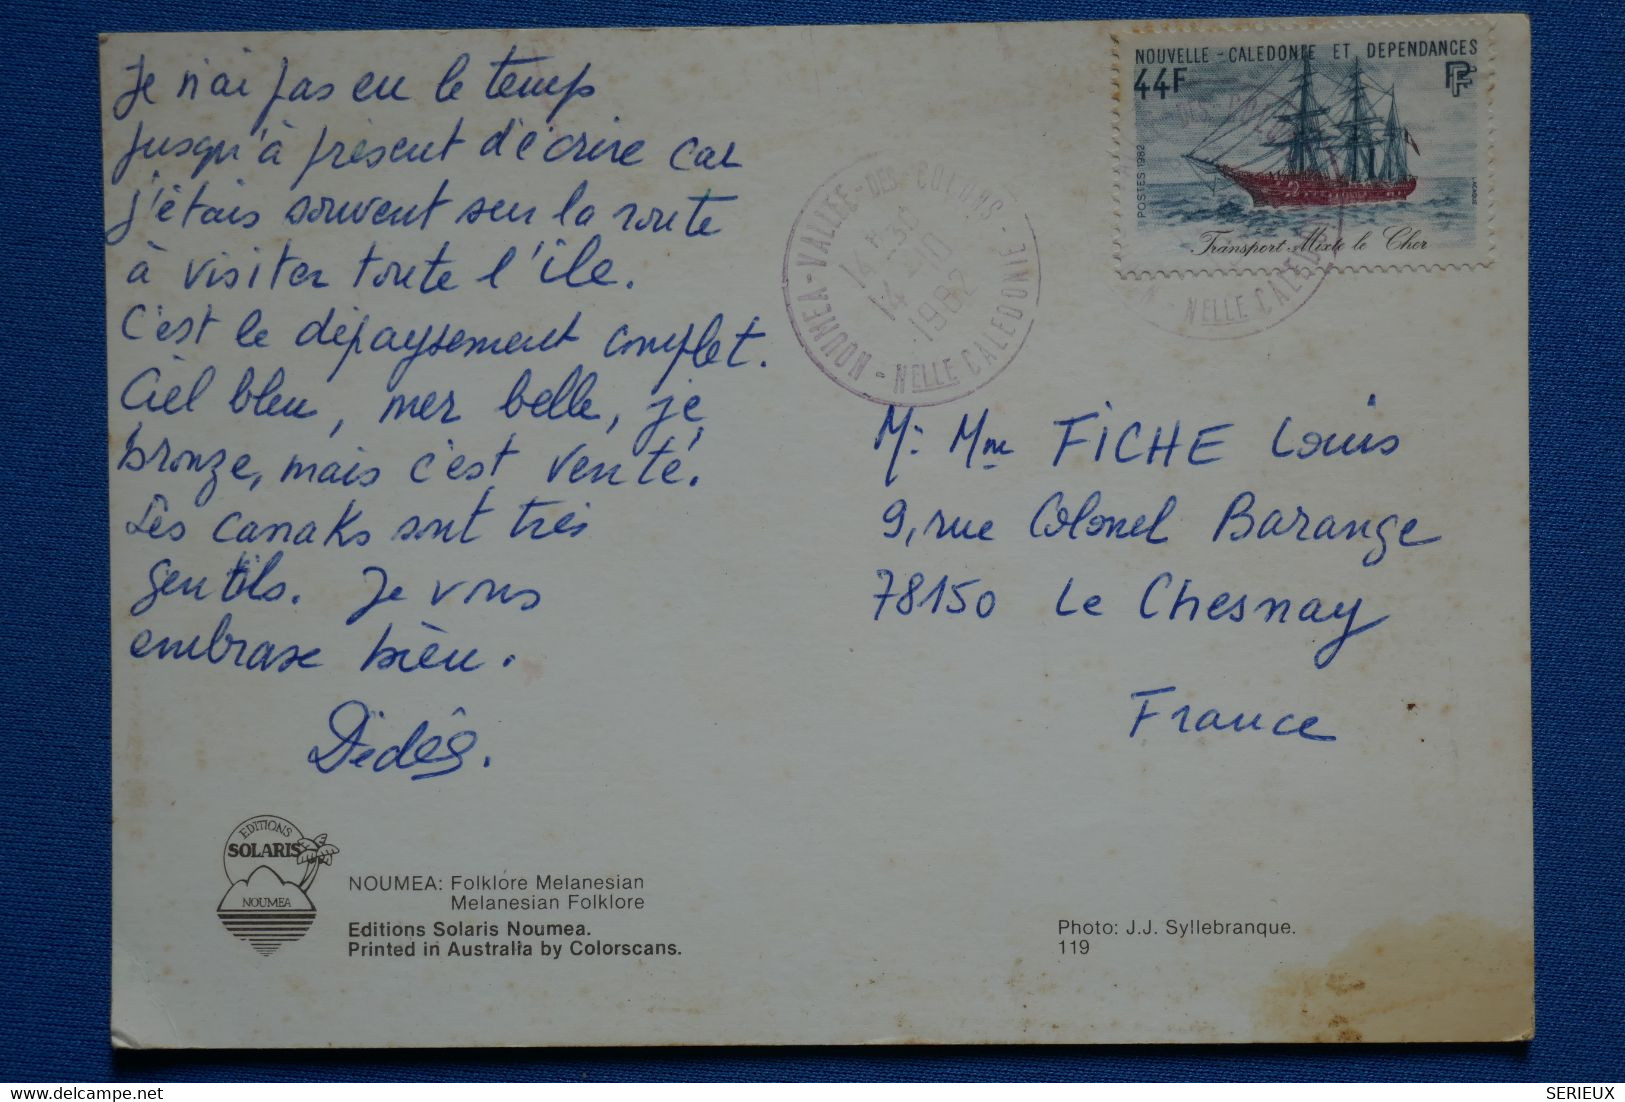 Je n'ai pas eu le temps
jusqu'à présent d'écrire car
j'étais souvent sur la route
à visiter toute l'île.
C'est le dépaysement complet.
Ciel bleu, mer belle, je
bronze, mais c'est venté.
Les canaks sont très
gentils. Je vous
embrase bien.
Dédés.
NOUVELLE-CALEDONIE ET DEPENDANCES
44F
POSTES 1982
Transport Mixte le Cher
NOUMEA-VALLEE-DES-COLONS-
NELLE CALEDONIE
14 H 30
14-10
1982
NELLE CALEDONIE
M. Mme FICHE Louis
9, rue Colonel Barange
78150 Le Chesnay
France
EDITIONS
SOLARIS
NOUMEA
NOUMEA: Folklore Melanesian
Melanesian Folklore
Editions Solaris Noumea.
Printed in Australia by Colorscans.
Photo: J.J. Syllebranque.
119
SERIEUX